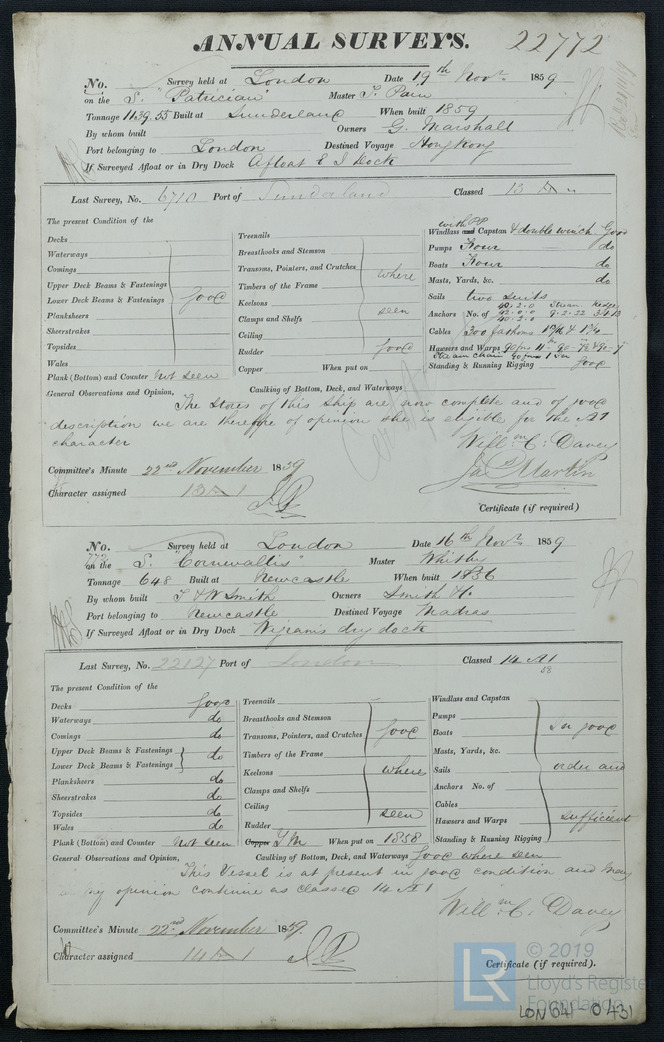 ANNUAL SURVEYS. 22772
No. Survey held at London Date 19th Novr 1859
on the S. "Patrician" Master T. Pain
Tonnage 1139.55 Built at Sunderland When built 1859
By whom built Owners G. Marshall
Port belonging to London Destined Voyage Hong Kong
If Surveyed Afloat or in Dry Dock Afloat E I Dock
Last Survey, No. 6710 Port of Sunderland Classed 13 A
The present Condition of the
Decks
Waterways
Comings
Upper Deck Beams & Fastenings
Lower Deck Beams & Fastenings good
Planksheers
Sheerstrakes
Topsides
Wales
Plank (Bottom) and Counter Not seen
Treenails
Breasthooks and Stemson
Transoms, Pointers, and Crutches where
Timbers of the Frame
Keelsons seen
Clamps and Shelfs
Ceiling
Rudder good
Copper When put on
with PP
Windlass and Capstan & double winch Good
Pumps Four do
Boats Four do
Masts, Yards, &c. do
Sails two suits
Anchors No. of
Cables 300 fathoms
Hawsers and Warps
Standing & Running Rigging good
General Observations and Opinion, Caulking of Bottom, Deck, and Waterways
The Stores of this Ship are now complete and of good
description we are therefore of opinion she is eligible for the A1
character
Willm. C. Davey
Jas Martin
Committee's Minute 22nd November 1859
Character assigned 13 A 1
Certificate (if required)
No. Survey held at London Date 16th Novr 1859
on the S. "Cornwallis" Master Whitby
Tonnage 648 Built at Newcastle When built 1836
By whom built T & W Smith Owners Smith &
Port belonging to Newcastle Destined Voyage Madras
If Surveyed Afloat or in Dry Dock Wigram's dry dock
Last Survey, No. 22127 Port of London Classed 14 A1
58
The present Condition of the
Decks good
Waterways do
Comings do
Upper Deck Beams & Fastenings
Lower Deck Beams & Fastenings do
Planksheers do
Sheerstrakes do
Topsides do
Wales do
Plank (Bottom) and Counter Not seen
Treenails
Breasthooks and Stemson
Transoms, Pointers, and Crutches good
Timbers of the Frame
Keelsons where
Clamps and Shelfs
Ceiling seen
Rudder
Copper Y M When put on 1858
Windlass and Capstan
Pumps
Boats in good
Masts, Yards, &c.
Sails order and
Anchors No. of
Cables
Hawsers and Warps sufficient
Standing & Running Rigging
General Observations and Opinion, Caulking of Bottom, Deck, and Waterways good where seen
This Vessel is at present in good condition and may
my opinion continue as classed 14 A1
Willm. C. Davey
Committee's Minute 22nd November 1859.
Character assigned 14 A 1
Certificate (if required).
© 2019
Lloyd's Register
Foundation
LR
LON 641-0431